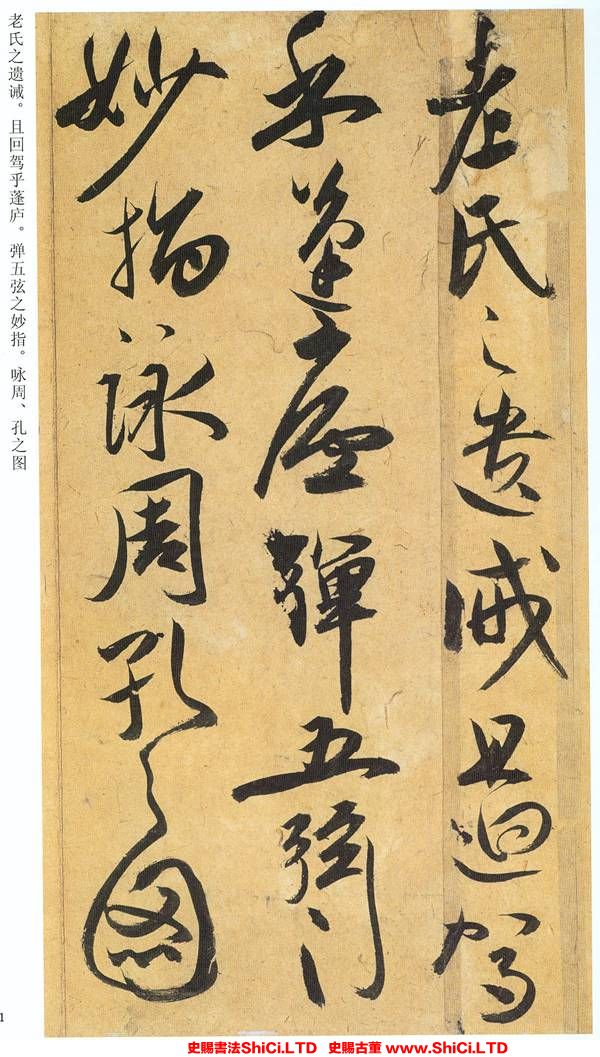 老氏之遺誡且迴駕
乎蓬廬彈五弦之
妙指詠周孔之圖
老氏之遗诫。且回驾乎蓬庐。弹五弦之妙指。咏周、孔之图
1
史賜書法ShiCi.LTD 史賜古董 www.ShiCi.LTD